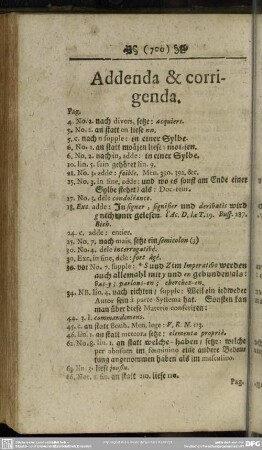 (700)
Addenda & corri-
genda.
Pag.
4. No. 2. nach divers, setzt: acquiers.
5. No. 1. an statt en liese un.
5. c. nach n supple: in einer Sylbe.
6. No. 1. an statt moäjen liese: moi-jen.
6. No. 2. nach in, adde: in einer Sylbe.
10. lin. 5. sein gehöret lin. 9.
11. No. 3. adde: foible. Men. 390. 391. &c.
15. No. 3. in fine, adde: und wo es sonst am Ende einer
Sylbe stehet/ als: Doc-teur.
17. No. 3. dele condulfante.
18. Exc. adde: In signer, signifier und
g nicht mit gelesen. Buff. 187.
Rich.
24. c. adde: entier.
23. No. 7. nach main, setzt ein semicolon (;)
30. No. 4. dele interrogatifé.
30. Exc. in fine, dele: fort âgé.
30. vor No. 7. supple: * S und Z im Imperativo werden
auch allemahl mit y und en gebunden als:
vas-y; parlons-en; cherchez-en.
34. NB. lin. 4. nach richten: supple: Weil ein jedweder
Autor sein à parte Systema hat. Sonsten kan
man über diese Materie conferiren:
44. 3. l. commandement.
45. c. an statt Bouh. Men. lege: V. R. N. 113.
46. lin. 1. an statt meteora setzt: elementa propriè.
62. No. 8. lin. 1. an statt welche haben: setzt: welche
per abusum im fœminino eine andere Bedeu-
tung angenommen haben als im masculino.
63. lin. 7. liese
66. Not. 1. lin. an statt 210. liese 110.
Pag.